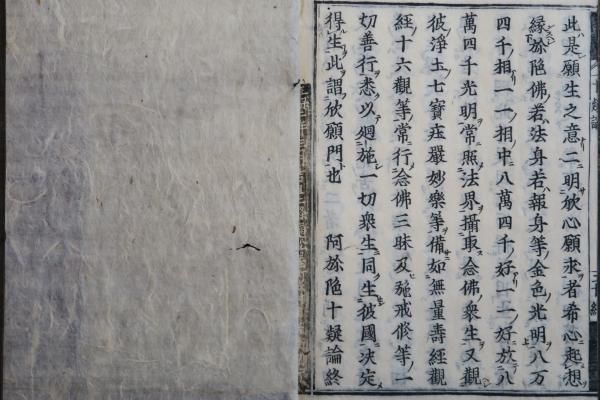 此是願生之意二明欣心願求者希心起想
縁旀陁佛若法身若報身等金色光明八万
四千相一一相中八萬四千好一一好放八
萬四千光明常照法界攝取念佛衆生又觀
彼淨土七寶莊嚴妙樂等備如無量壽經觀
經十六觀等常行念佛三昧及施戒修等一
切善行悉以廻施一切衆生同生彼國决定
得生此謂欣願門也　阿旀陁十疑論終